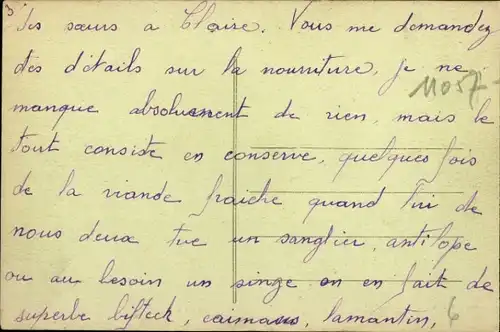 3
des sœurs a Blaise. Vous me demandez
des détails sur la nourriture, je ne
11057-
manque absolument de rien, mais le
tout consiste en conserve, quelques fois
de la viande fraiche quand l'un de
nous deux tue un sanglier, antilope
ou au besoin un singe on en fait de
superbe bifteck, caimans, lamantin,